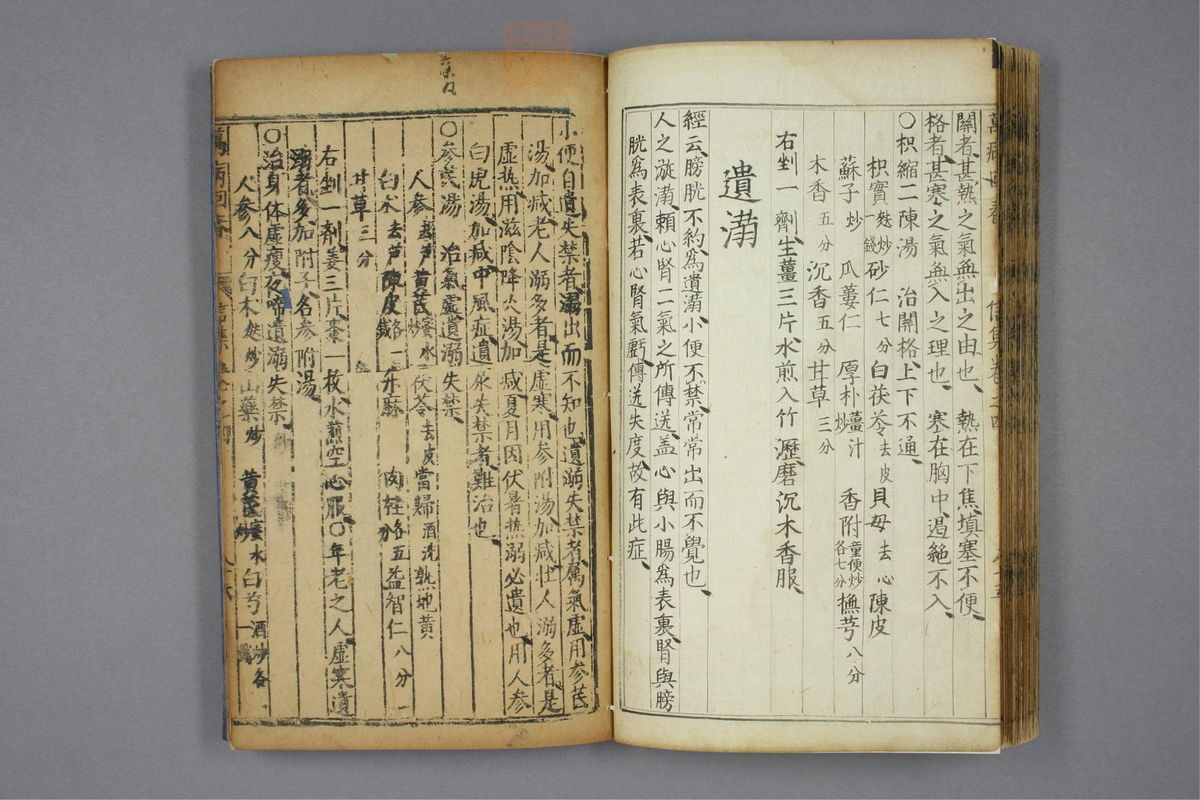 關者甚熱之氣無出之由也 熱在下焦填塞不便
格者甚塞之氣無入之理也 塞在胸中遏絕不入
〇枳縮二陳湯 治關格上下不通
枳實麩炒一錢 砂仁七分 白茯苓去皮 貝母去心 陳皮
蘇子炒 瓜蔞仁 厚朴薑汁炒 香附童便炒各七分 撫芎八分
木香五分 沉香五分 甘草三分
右剉一劑生薑三片水煎入竹瀝磨沉木香服
遺溺
經云膀胱不約為遺溺小便不禁常常出而不覺也
人之漩溺賴心腎二氣之所傳送盖心與小腸為表裏腎與膀
胱為表裏若心腎氣虧傳送失度故有此症
小便自遺失禁者溺出而不知也遺溺失禁者屬氣虛用參芪
湯加減老人溺多者是虛寒用參附湯加減壯人溺多者是
虛熱用滋陰降火湯加減夏月因伏暑熱溺必遺也用人參
白虎湯加減中風症遺尿失禁者難治也
〇參芪湯 治氣虛遺溺失禁
人參去芦 黃芪蜜水炒 茯苓去皮 當歸酒洗 熟地黃
白朮去芦 陳皮各一錢 升麻 肉桂各五分 益智仁八分
甘草三分
右剉一劑姜三片棗一枚水煎空心服〇年老之人虛寒遺
溺者多加附子名參附湯
〇治身體虛瘦夜啼遺溺失禁
人參八分 白朮麩炒 山藥炒 黃芪蜜水炒 白芍酒炒各一錢